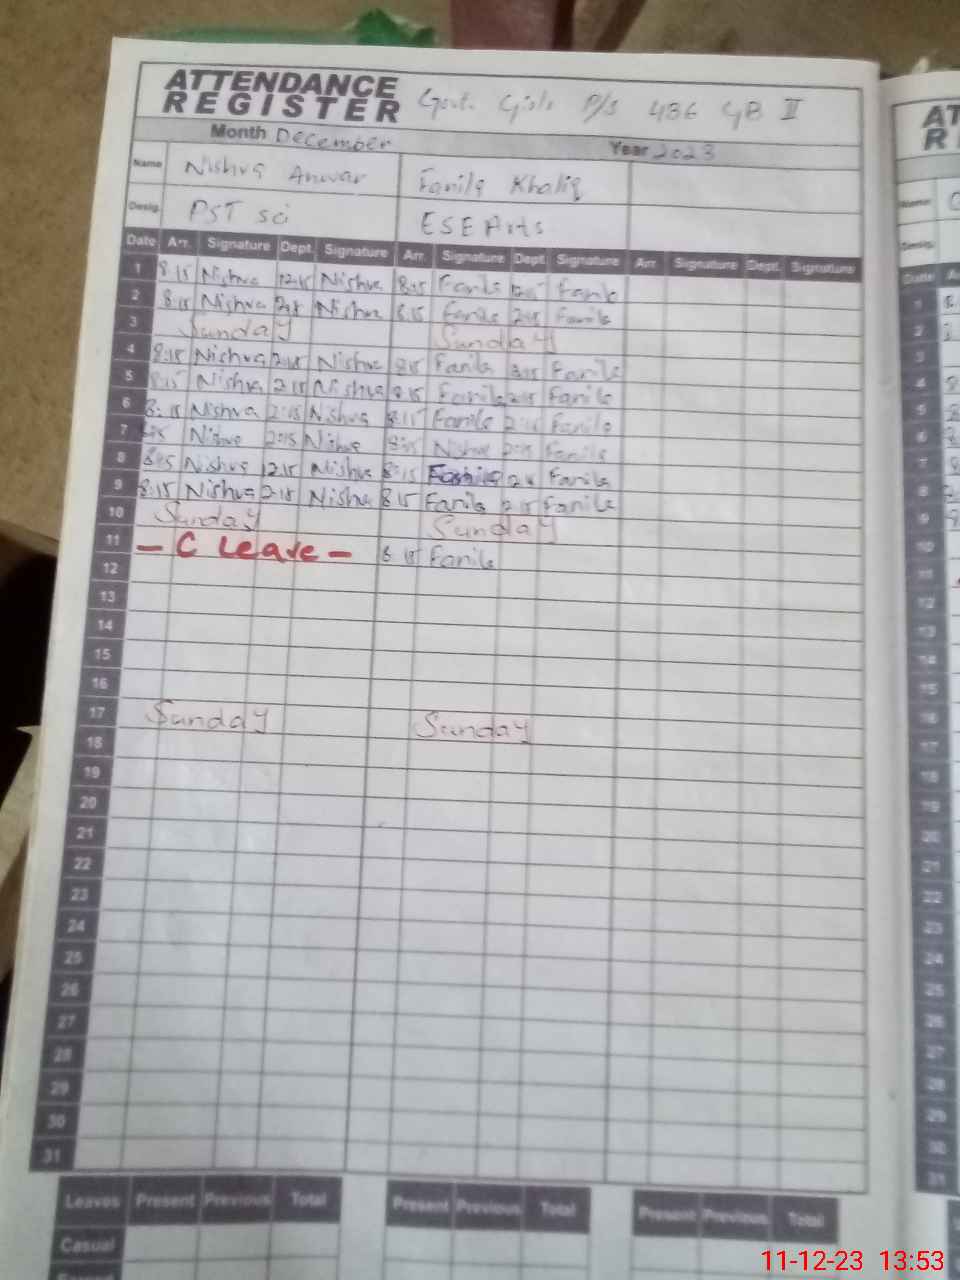 ATTENDANCE REGISTER Govt. Girls P/S 436 GB II
Month December Year 2023
Name Nishva Anwar Fanila Khaliq
Desig. PST sci ESE Arts
Date Arr. Signature Dept. Signature Arr. Signature Dept. Signature Arr. Signature Dept. Signature
1 8.15 Nishva 12.15 Nishva 8:15 Fanila 12:15 Fanila
2 8:15 Nishva 2:15 Nishva 8.15 Fanila 2:15 Fanila
3 Sunday Sunday
4 8:15 Nishva 2:15 Nishva 8:15 Fanila 2:15 Fanila
5 8:15 Nishva 2:15 Nishva 8:15 Fanila 2:15 Fanila
6 8:15 Nishva 2:15 Nishva 8:15 Fanila 2:15 Fanila
7 8:15 Nishva 2:15 Nishva 8:15 Nishva 2:15 Fanila
8 8:15 Nishva 12.15 Nishva 8:15 Fanila Fanila
9 8:15 Nishva 2:15 Nishva 8.15 Fanila 2:15 Fanila
10 Sunday Sunday
11 - C Leave - 8:15 Fanila
12
13
14
15
16
17 Sunday Sunday
18
19
20
21
22
23
24
25
26
27
28
29
30
31
Leaves Present Previous Total Present Previous Total Present Previous Total
Casual
11-12-23 13:53